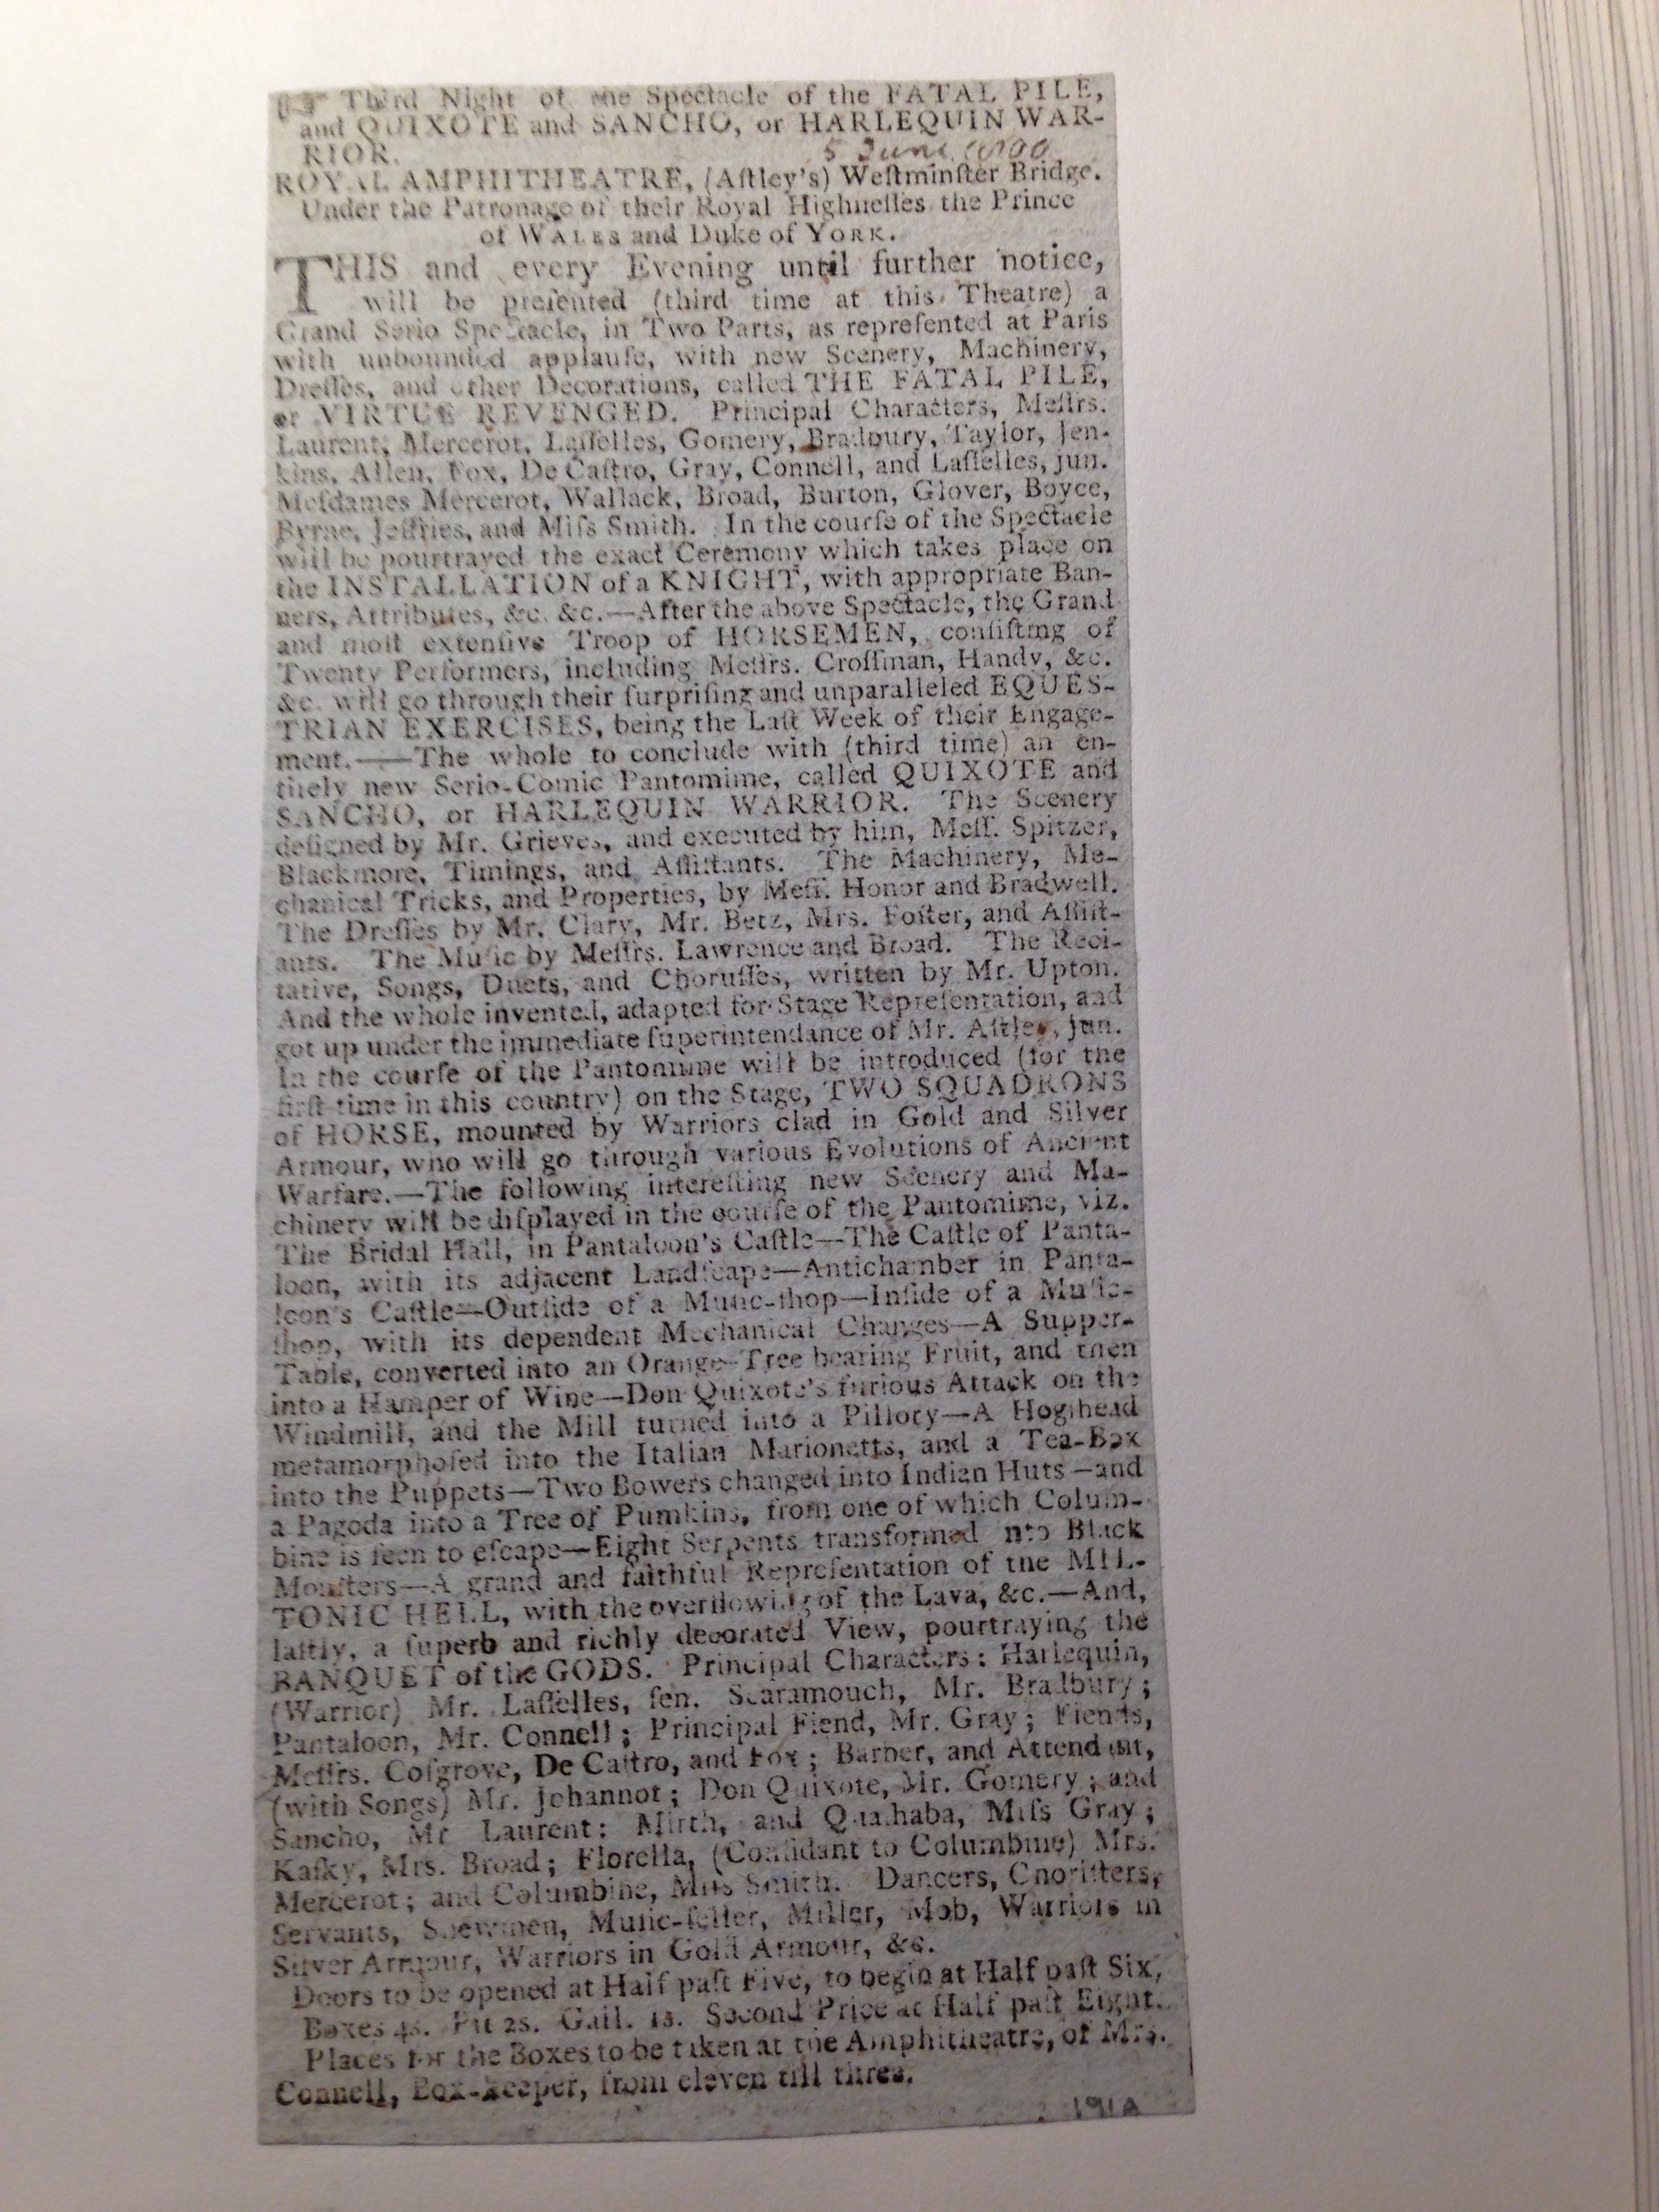 ☞ Third Night of the Spectacle of the FATAL PILE,
and QUIXOTE and SANCHO, or HARLEQUIN WAR-
RIOR.
5 June 1800
ROYAL AMPHITHEATRE, (Aſtley's) Weſtminſter Bridge.
Under the Patronage of their Royal Highneſſes the Prince
of WALES and Duke of YORK.
THIS and every Evening until further notice,
will be preſented (third time at this Theatre) a
Grand Serio Spectacle, in Two Parts, as repreſented at Paris
with unbounded applauſe, with new Scenery, Machinery,
Dreſſes, and other Decorations, called THE FATAL PILE,
or VIRTUE REVENGED. Principal Characters, Meſſrs.
Laurent, Mercerot, Laſſelles, Gomery, Bradbury, Taylor, Jen-
kins, Allen, Fox, De Caſtro, Gray, Connell, and Laſſelles, jun.
Meſdames Mercerot, Wallack, Broad, Burton, Glover, Boyce,
Byrne, Jeffries, and Miſs Smith. In the courſe of the Spectacle
will be pourtrayed the exact Ceremony which takes place on
the INSTALLATION of a KNIGHT, with appropriate Ban-
ners, Attributes, &c. &c.—After the above Spectacle, the Grand
and moſt extenſive Troop of HORSEMEN, conſiſting of
Twenty Performers, including Meſſrs. Croſſman, Handy, &c.
&c. will go through their ſurpriſing and unparalleled EQUES-
TRIAN EXERCISES, being the Laſt Week of their Engage-
ment.——The whole to conclude with (third time) an en-
tirely new Serio-Comic Pantomime, called QUIXOTE and
SANCHO, or HARLEQUIN WARRIOR. The Scenery
deſigned by Mr. Grieves, and executed by him, Meſſ. Spitzer,
Blackmore, Timings, and Aſſiſtants. The Machinery, Me-
chanical Tricks, and Properties, by Meſſ. Honor and Bradwell.
The Dreſſes by Mr. Clary, Mr. Betz, Mrs. Foſter, and Aſſiſt-
ants. The Muſic by Meſſrs. Lawrence and Broad. The Reci-
tative, Songs, Duets, and Choruſſes, written by Mr. Upton.
And the whole invented, adapted for Stage Repreſentation, and
got up under the immediate ſuperintendance of Mr. Aſtley, jun.
In the courſe of the Pantomime will be introduced (for the
firſt time in this country) on the Stage, TWO SQUADRONS
of HORSE, mounted by Warriors clad in Gold and Silver
Armour, who will go through various Evolutions of Ancient
Warfare.—The following intereſting new Scenery and Ma-
chinery will be diſplayed in the courſe of the Pantomime, viz.
The Bridal Hall, in Pantaloon's Caſtle—The Caſtle of Panta-
loon, with its adjacent Landſcape—Antichamber in Panta-
loon's Caſtle—Outſide of a Muſic-ſhop—Inſide of a Muſic-
ſhop, with its dependent Mechanical Changes—A Supper-
Table, converted into an Orange-Tree bearing Fruit, and then
into a Hamper of Wine—Don Quixote's furious Attack on the
Windmill, and the Mill turned into a Pillory—A Hogſhead
metamorphoſed into the Italian Marionetts, and a Tea-Box
into the Puppets—Two Bowers changed into Indian Huts—and
a Pagoda into a Tree of Pumkins, from one of which Colum-
bine is ſeen to eſcape—Eight Serpents transformed into Black
Monſters—A grand and faithful Repreſentation of the MIL-
TONIC HELL, with the overflowing of the Lava, &c.—And,
laſtly, a ſuperb and richly decorated View, pourtraying the
BANQUET of the GODS. Principal Characters: Harlequin,
(Warrior) Mr. Laſſelles, ſen. Scaramouch, Mr. Bradbury;
Pantaloon, Mr. Connell; Principal Fiend, Mr. Gray; Fiends,
Meſſrs. Coſgrove, De Caſtro, and Fox; Barber, and Attendant,
(with Songs) Mr. Johannot; Don Quixote, Mr. Gomery; and
Sancho, Mr Laurent: Mirth, and Miſs Gray;
Kaſky, Mrs. Broad; Florella, (Confidant to Columbine) Mrs.
Mercerot; and Columbine, Miſs Smith. Dancers, Choriſters,
Servants, Shewmen, Muſic-ſeller, Miller, Mob, Warriors in
Silver Armour, Warriors in Gold Armour, &c.
Doors to be opened at Half paſt Five, to begin at Half paſt Six,
Boxes 4s. Pit 2s. Gall. 1s. Second Price at Half paſt Eight.
Places for the Boxes to be taken at the Amphitheatre, of Mrs.
Connell, Box-keeper, from eleven till three.